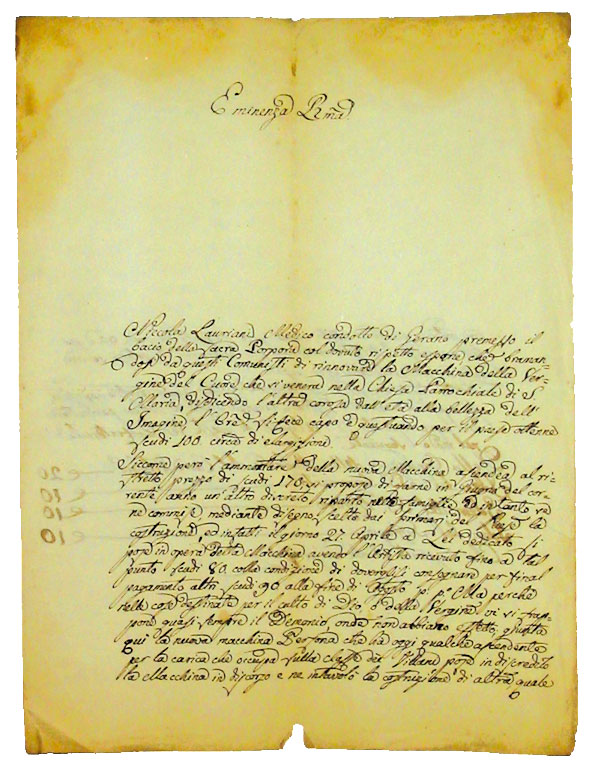 Eminenza Rma
Niccola Lauriani Medico condotto di Gerano premesso il
bacio della Sacra Porpora col dovuto rispetto espone che braman
dosi da questi Comunisti di rinnovare la Macchina della Ver
gine del Cuore che si venera nella Chiesa Parrochiale di S
Maria, disdicendo l'altra corosa dall'età alla bellezza dell'
Imagine, l'Ore si fece capo e questuando per il paese ottenne
scudi 100 circa di elargizione
Siccome però l'ammontare della nuova Macchina ascendea al ri
stretto prezzo di scudi 170, si propose di farne in Giugno del cor
rente anno un altro discreto riparto nelle famiglie, ed intanto ven
ne comuni e, mediante disegno scelto dai primari del Paese la
costruzione, ed infatti il giorno 27 Aprile a Lei dedicato si
pose in opera detta Macchina avendo l'Artista ricevuto fino a tal
punto scudi 80 colla condizione di doverglisi consegnare per final
pagamento altri scudi 90 alla fine di p. p. Ma perche
nelle cose destinate per il culto di Dio, o della Vergine vi si frap
pone quasi sempre il Demonio, onde non abbiano effetto, giunta
qui la nuova macchina Persona che ha oggi qualche ascendente
per la carica che occupa sulla classe dei Villani pose in discredito
la Macchina in discorso e ne intavolò la costruzione di altra, quale
20
10
10
10